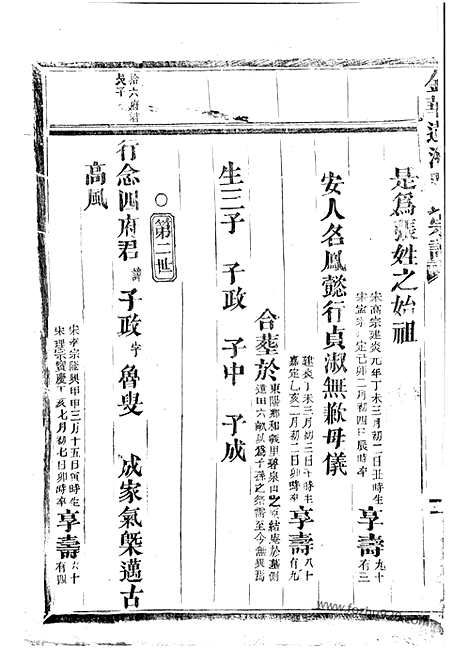 是爲張姓之始祖
宋高宗建炎元年丁未三月初二日丑時生
定己卯二月初四日辰時卒
享壽
九十有三
安人名鳳懿行貞淑無歉母儀
建炎丁未三月初三日午時生
嘉定乙亥二月初二日卯時卒
享壽
八十有九
合塟於
東陽鄉和義里碧泉山之結庵於墓側
道田六畝以爲子孫之祭需至今無異焉
生三子 子政 子中 子成
第二世
行念四府君 諱 子政 字 魯叟 成家氣槩邁古
高風
宋孝宗隆興甲申三月十五日寅時生
宋理宗寶慶丁亥七月初七日卯時卒
享壽
六十有四